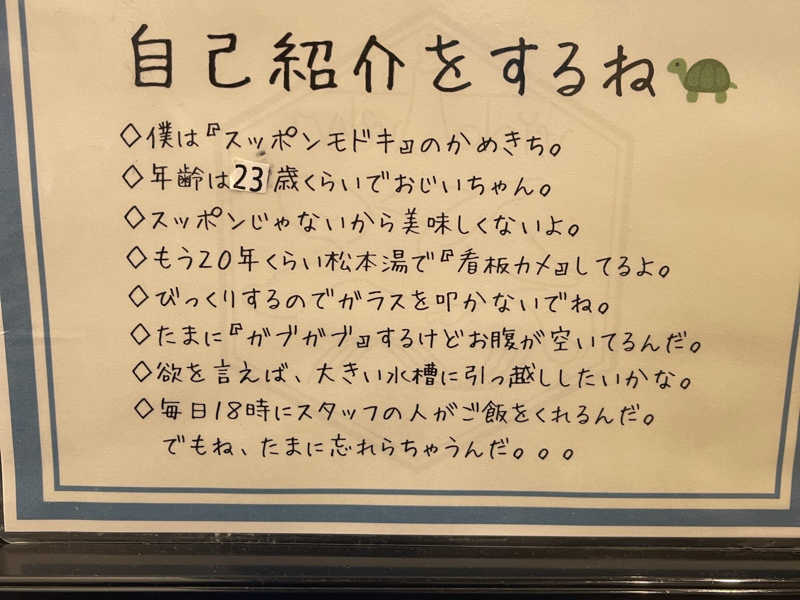 自己紹介をするね
◇僕は『スッポンモドキ』のかめきち。
◇年齢は23歳くらいでおじいちゃん。
◇スッポンじゃないから美味しくないよ。
◇もう20年くらい松本湯で『看板カメ』してるよ。
◇びっくりするのでガラスを叩かないでね。
◇たまに『ガブガブ』するけどお腹が空いてるんだ。
◇欲を言えば、大きい水槽に引っ越ししたいかな。
◇毎日18時にスタッフの人がご飯をくれるんだ。
でもね、たまに忘れらちゃうんだ。。。